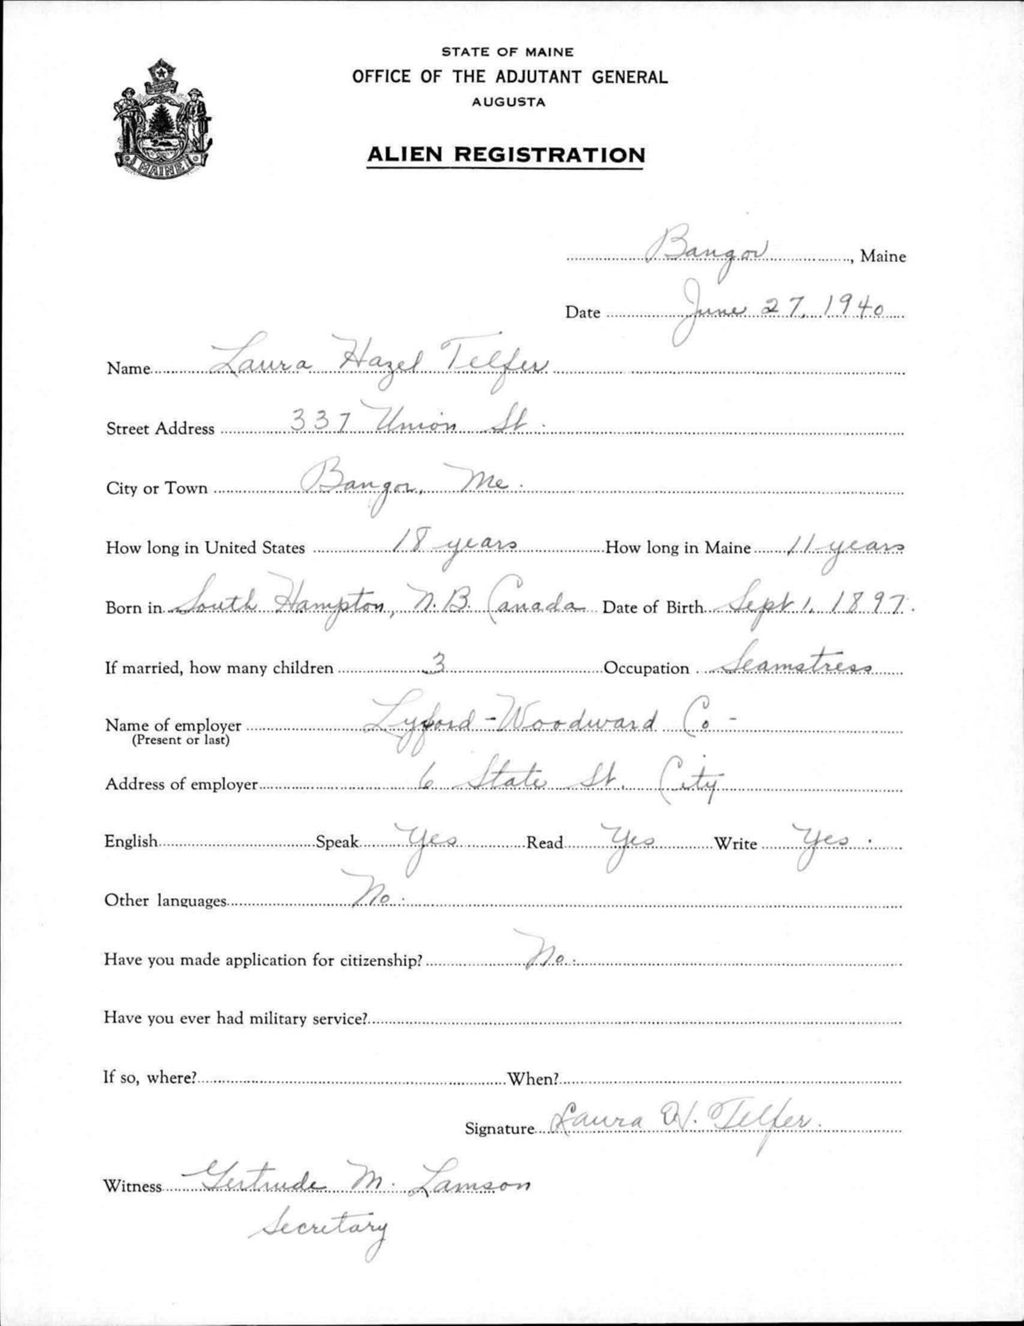 STATE OF MAINE
OFFICE OF THE ADJUTANT GENERAL
AUGUSTA
MAINE
ALIEN REGISTRATION
Bangor, Maine
Date June 27, 1940
Name Laura Hazel Telfer
Street Address 337 Union St.
City or Town Bangor, Me.
How long in United States 18 years How long in Maine 11 years
Born in South Hampton, N.B. Canada Date of Birth Sept 1, 1897.
If married, how many children 3 Occupation Seamstress
Name of employer Lyford-Woodward Co -
(Present or last)
Address of employer 6 State St. City
English Speak Yes Read Yes Write Yes.
Other languages No.
Have you made application for citizenship? No.
Have you ever had military service?
If so, where? When?
Signature Laura H. Telfer.
Witness Gertrude M. Lamson
Secretary